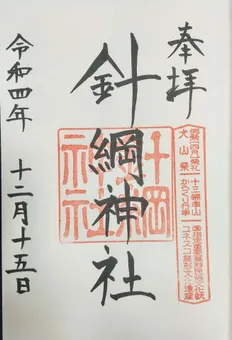 奉拝
針綱神社
令和四年 十二月十五日
犬山祭